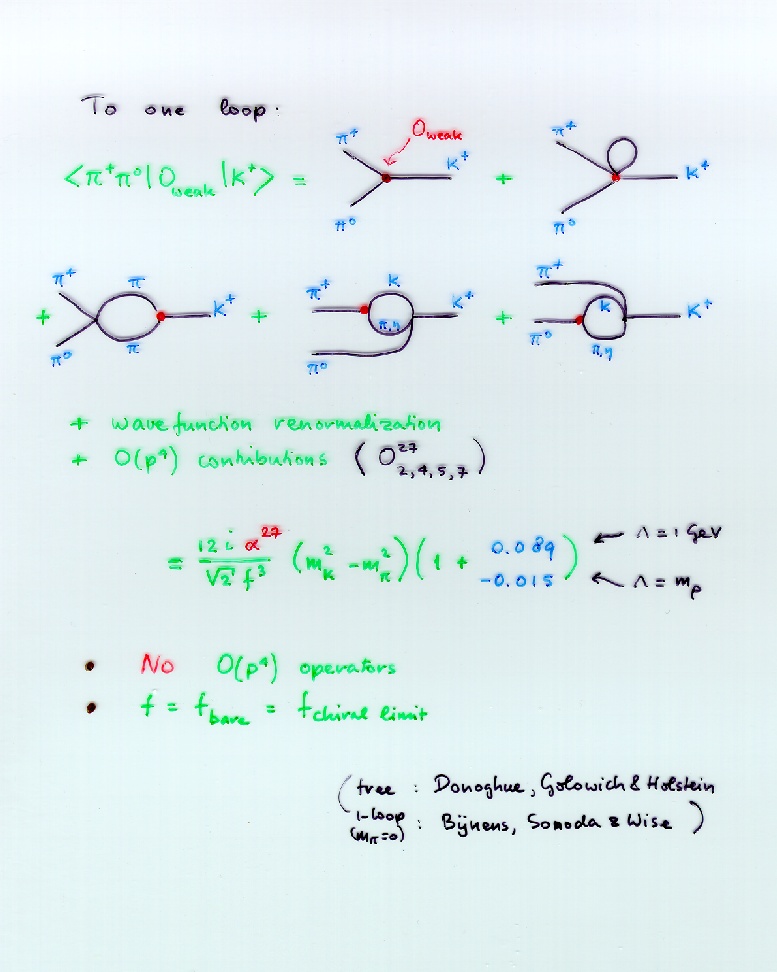 To one loop:
π⁺ O_weak K⁺ π⁺ K⁺
<π⁺π⁰|O_weak|K⁺> = +
π⁰ π⁰
π⁺ π K⁺ π⁺ K K⁺ π⁺ K K⁺
+ + π,η +
π⁰ π π⁰ π⁰ π,η
+ wavefunction renormalization
+ O(p⁴) contributions (O²⁷_2,4,5,7)
= 12 i α²⁷ / √2 f³ (m_K² - m_π²)(1 + 0.089 ) ← Λ = 1 GeV
-0.015 ← Λ = m_ρ
• No O(p⁴) operators
• f = f_bare = f_chiral limit
(tree : Donoghue, Golowich & Holstein
1-loop (m_π=0) : Bijnens, Sonoda & Wise)